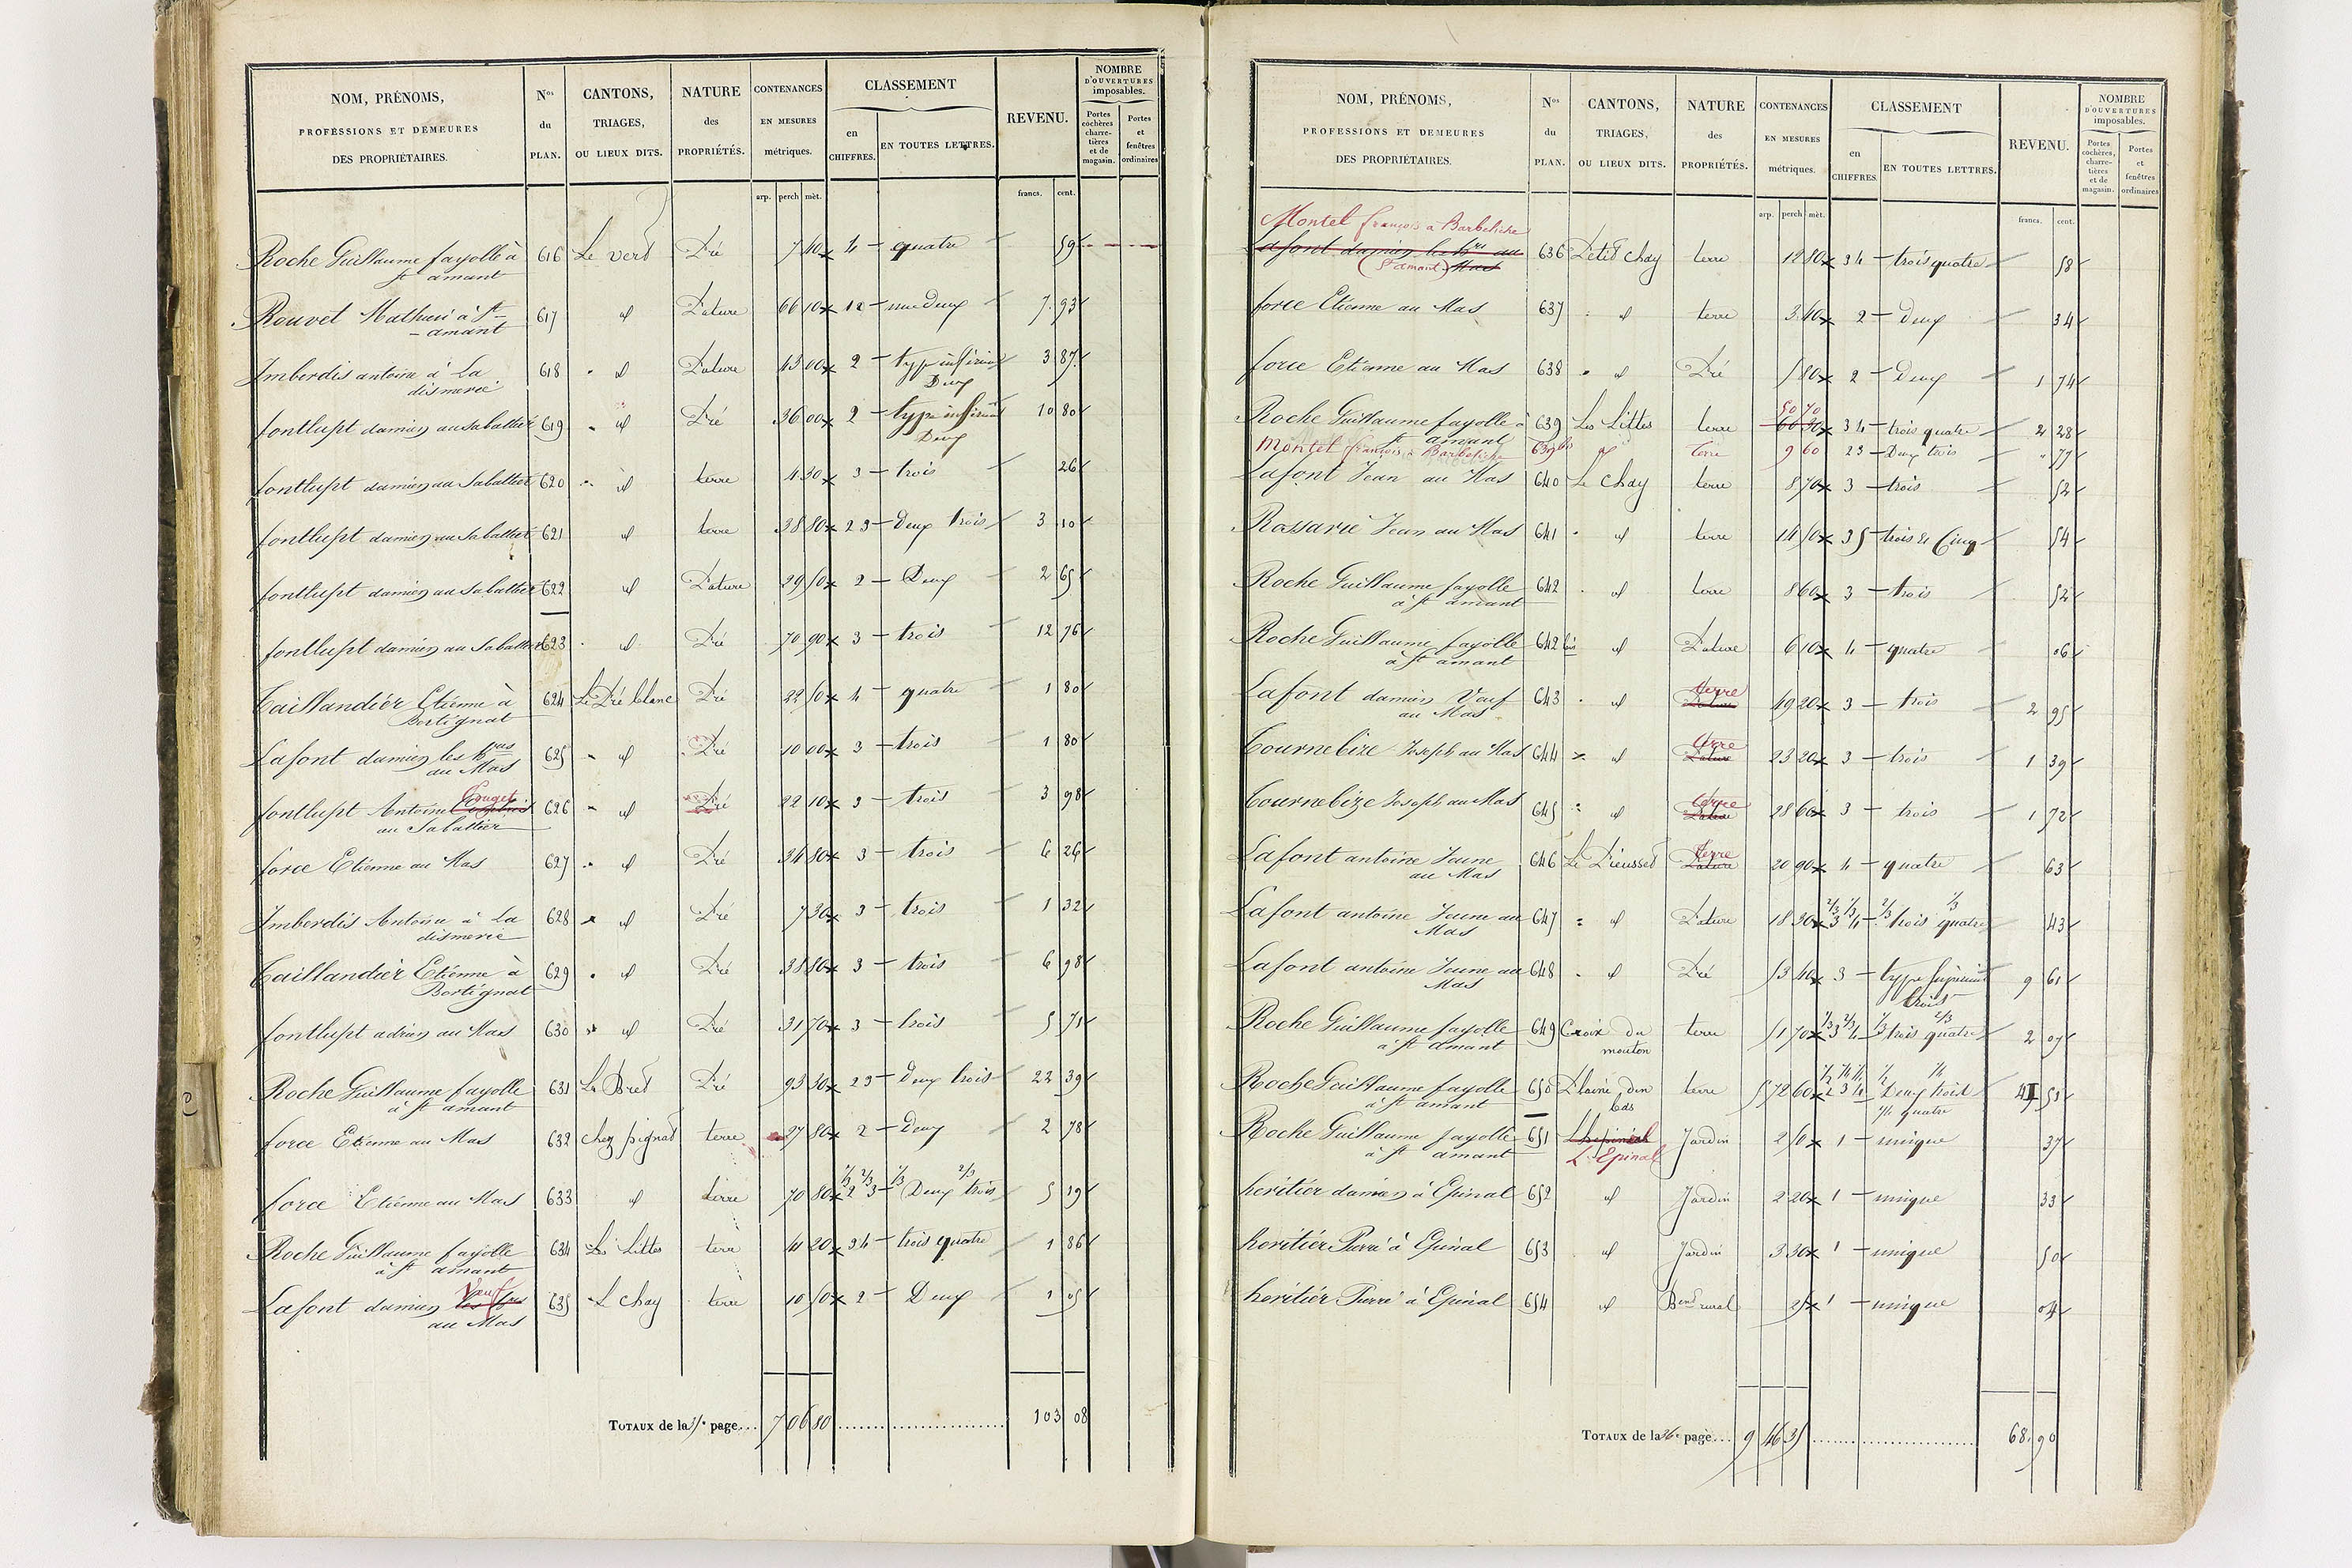 NOM, PRÉNOMS, PROFESSIONS ET DEMEURES DES PROPRIÉTAIRES. Nos du PLAN. CANTONS, TRIAGES, OU LIEUX DITS. NATURE des PROPRIÉTÉS. CONTENANCES EN MESURES métriques. CLASSEMENT en CHIFFRES. EN TOUTES LETTRES. REVENU. NOMBRE D'OUVERTURES imposables. Portes cochères charretières et de magasin. Portes et fenêtres ordinaires
arp. perch mèt. francs. cent.
Roche Guillaume fayolle à 616 Le vert Pré 7 40 4 quatre 59
st amant
Rouvet Mathieu à st 617 id Pature 66 10 12 une Deux 7 93
amant
Imberdis antoine à La 618 id Pature 43 00 2 type inférieur 3 87
dismerie Deux
fontlupt damien au Sabattier 619 id Pré 36 00 2 type inférieur 10 80
Deux
fontlupt damien au Sabattier 620 id terre 4 30 3 trois 26
fontlupt damien au Sabattier 621 id terre 38 80 2 3 Deux trois 3 10
fontlupt damien au Sabattier 622 id Pature 29 50 2 Deux 2 65
fontlupt damien au Sabattier 623 id Pré 70 90 3 trois 12 76
Taillandier Etienne à 624 Le Pré blanc Pré 22 50 4 quatre 1 80
Bortignat
Lafont damien les hers 625 id Pré 10 00 3 trois 1 80
au Mas
Couget
fontlupt Antoine 626 id Pré 22 10 3 trois 3 98
au Sabattier
force Etienne au Mas 627 id Pré 34 80 3 trois 6 26
Imberdis Antoine à La 628 id Pré 7 30 3 trois 1 32
dismerie
Taillandier Etienne à 629 id Pré 38 80 3 trois 6 98
Bortignat
fontlupt adrien au Mas 630 id Pré 31 70 3 trois 5 71
Roche Guillaume fayolle 631 Le Bret Pré 93 30 2 3 Deux trois 22 39
à st amant
force Etienne au Mas 632 chez pignat terre 27 80 2 Deux 2 78
force Etienne au Mas 633 id terre 70 80 1/3 2 2/3 3 1/3 Deux 2/3 trois 5 19
Roche Guillaume fayolle 634 Les Littes terre 41 20 3 4 trois quatre 1 86
à st amant
Veuf
Lafont damien les hers 635 Le chay terre 10 50 2 Deux 1 05
au Mas
TOTAUX de la 35e page... 7 06 80 103 08
NOM, PRÉNOMS, PROFESSIONS ET DEMEURES DES PROPRIÉTAIRES. Nos du PLAN. CANTONS, TRIAGES, OU LIEUX DITS. NATURE des PROPRIÉTÉS. CONTENANCES EN MESURES métriques. CLASSEMENT en CHIFFRES. EN TOUTES LETTRES. REVENU. NOMBRE D'OUVERTURES imposables. Portes cochères, charretières et de magasin. Portes et fenêtres ordinaires
arp. perch mèt. francs. cent.
Montel françois à Barbeliche
Lafont damien les hrs au 636 Petit chay terre 12 80 3 4 trois quatre 58
(St amant) Mas
force Etienne au Mas 637 id terre 3 40 2 Deux 34
force Etienne au Mas 638 id Pré 5 80 2 Deux 1 74
50 70
Roche Guillaume fayolle à 639 Les Littes terre 60 30 3 4 trois quatre 2 28
st amant
Montel françois à Barbeliche 639 bis id Terre 9 60 2 3 Deux trois 77
Lafont Jean au Mas 640 Le chay terre 8 70 3 trois 52
Rossarie Jean au Mas 641 id terre 14 50 3 5 trois et Cinq 54
Roche Guillaume fayolle 642 id terre 8 60 3 trois 52
à st amant
Roche Guillaume fayolle 642 bis id Pature 6 10 4 quatre 06
à st amant
Lafont damien Veuf 643 id terre Pature 49 20 3 trois 2 95
au Mas
Tournebize Joseph au Mas 644 id terre Pature 23 20 3 trois 1 39
Tournebize Joseph au Mas 645 id terre Pature 28 60 3 trois 1 72
Lafont antoine Jeune 646 Le Prieusset terre Pature 20 90 4 quatre 63
au Mas
Lafont antoine Jeune au 647 id Pature 18 30 2/3 3 1/3 4 2/3 trois 1/3 quatre 43
Mas
Lafont antoine Jeune au 648 id Pré 53 40 3 type supérieur 9 61
Mas trois
Roche Guillaume fayolle 649 Croix du terre 51 70 1/3 3 2/3 4 1/3 trois 2/3 quatre 2 07
à st amant mouton
Roche Guillaume fayolle 650 Plaine den terre 5 72 60 1/2 2 1/4 3 1/4 4 1/2 Deux 1/4 trois 41 51
à st amant bas 1/4 quatre
Roche Guillaume fayolle 651 Jardin 2 50 1 unique 37
à st amant L'Epinal
heritier damien à Epinal 652 id Jardin 2 20 1 unique 33
heritier Pierre à Epinal 653 id Jardin 3 30 1 unique 50
heritier Pierre à Epinal 654 id Bent rural 25 1 unique 04
TOTAUX de la 36e page... 9 46 35 68 90